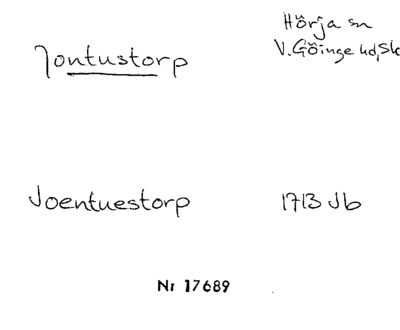 Hörja sn
Jontustorp
V. Göinge hd, Sk
Joentuestorp
1713 Jb
Nr 17689